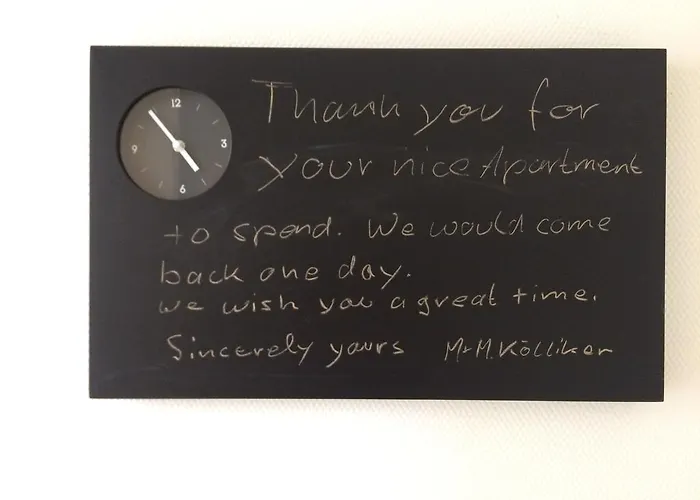 12
3
6
9
Thank you for
your nice Apartment
to spend. We would come
back one day.
we wish you a great time.
Sincerely yours M+M. Kölliker